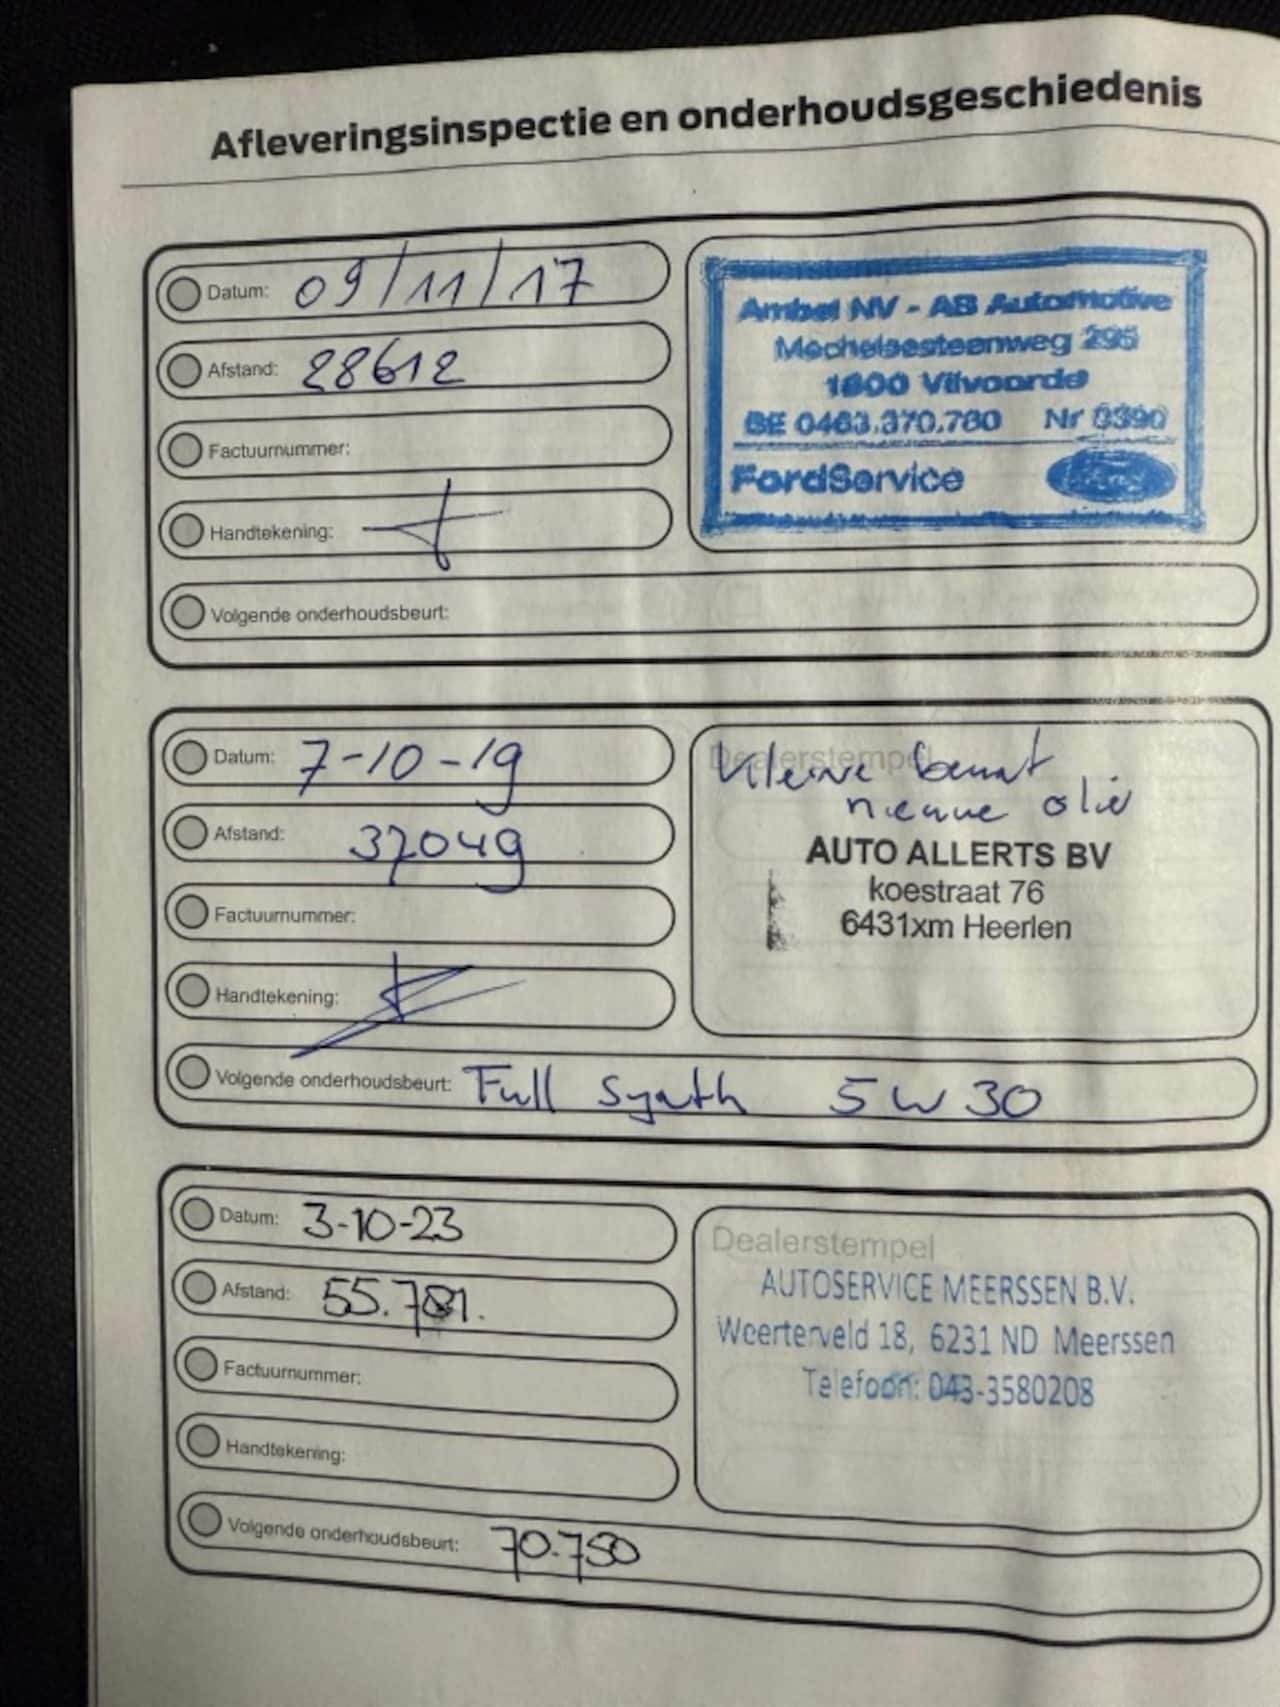 Afleveringsinspectie en onderhoudsgeschiedenis
Datum: 09/11/17
Afstand: 28612
Factuurnummer:
Handtekening:
Volgende onderhoudsbeurt:
Ambel NV - AB Automotive
Mechelsesteenweg 295
1800 Vilvoorde
BE 0463.370.780 Nr 0390
FordService
Datum: 7-10-19
Afstand: 37049
Factuurnummer:
Handtekening:
Volgende onderhoudsbeurt: Full Synth 5W30
Dealerstempel
Kleine beurt
nieuwe olie
AUTO ALLERTS BV
koestraat 76
6431xm Heerlen
Datum: 3-10-23
Afstand: 55.781.
Factuurnummer:
Handtekening:
Volgende onderhoudsbeurt: 70.750
Dealerstempel
AUTOSERVICE MEERSSEN B.V.
Weerterveld 18, 6231 ND Meerssen
Telefoon: 043-3580208